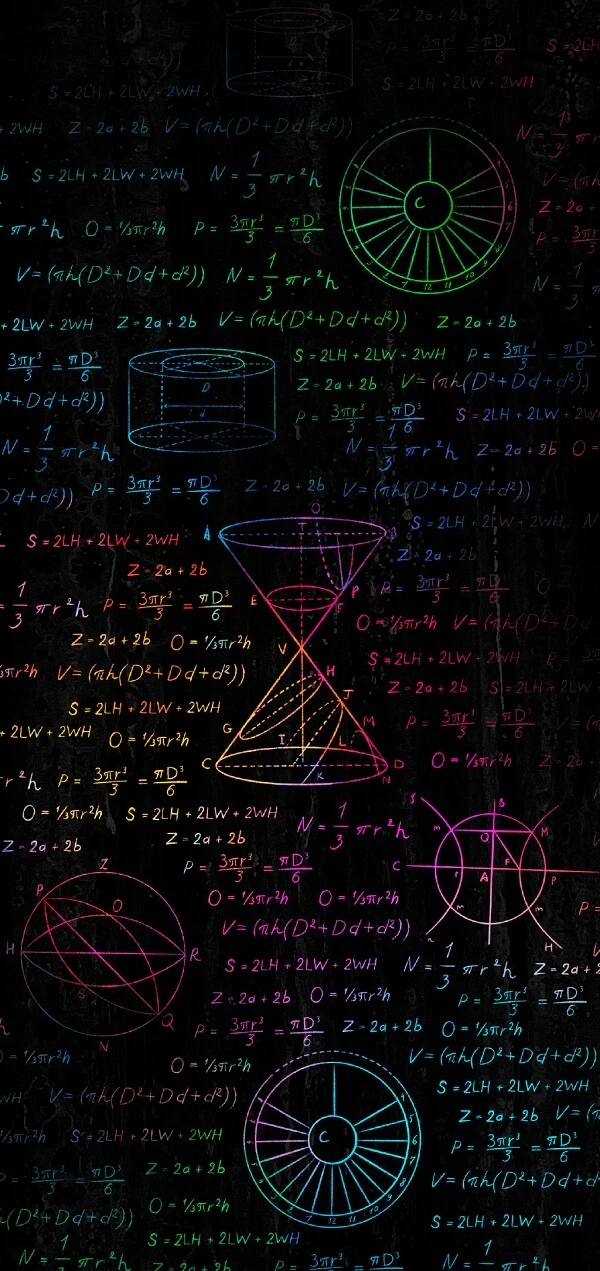 Z = 2a + 2b
P = 3πr³/3 = πD³/6
S = 2LH
S = 2LH + 2LW + 2WH
S = 2LH + 2LW + 2WH
+ 2WH Z = 2a + 2b V = (πh(D² + Dd + d²))
N = 1/3
b S = 2LH + 2LW + 2WH N = 1/3 πr²h
V = (πh
C
Z = 2a +
πr²h O = ⅓πr²h P = 3πr³/3 = πD³/6
P = 3πr
V = (πh(D² + Dd + d²)) N = 1/3 πr²h
N = 1/3 π
12 11 10
+ 2LW + 2WH Z = 2a + 2b V = (πh(D² + Dd + d²)) Z = 2a + 2b
3πr³/3 = πD³/6 S = 2LH + 2LW + 2WH P = 3πr³/3 = πD³/6
D Z = 2a + 2b V = (πh(D² + Dd + d²))
² + Dd + d²)) d P = 3πr³/3 = πD³/6 S = 2LH + 2LW + 2W
N = 1/3 πr²h N = 1/3 πr²h Z = 2a + 2b O =
Dd + d²)) P = 3πr³/3 = πD³/6 Z = 2a + 2b V = (πh(D² + Dd + d²))
S = 2LH + 2LW + 2WH N
O
A T B
S = 2LH + 2LW + 2WH Z = 2a + 2b
Z = 2a + 2b P P = 3πr³/3 = πD³/6 O
1/3 πr²h P = 3πr³/3 = πD³/6 E F
O = ⅓πr²h V = (πh(D² + Dd +
Z = 2a + 2b O = ⅓πr²h V
S = 2LH + 2LW + 2WH P = 3
⅓πr²h V = (πh(D² + Dd + d²)) H
Z = 2a + 2b S = 2LH + 2LW
J
S = 2LH + 2LW + 2WH M P = 3πr³/3 = πD³/6 V = (π
+ 2LW + 2WH O = ⅓πr²h G I L
C K D N O = ⅓πr²h Z = 2a
πr²h P = 3πr³/3 = πD³/6
O = ⅓πr²h S = 2LH + 2LW + 2WH S B
N = 1/3 πr²h m Q M
Z = 2a + 2b Z = 2a + 2b
P = 3πr³/3 = πD³/6 C r A F P
Z
P O O = ⅓πr²h O = ⅓πr²h m m
P =
V = (πh(D² + Dd + d²)) n H
H R
S = 2LH + 2LW + 2WH N = 1/3 πr²h Z = 2a + 2
S Z = 2a + 2b O = ⅓πr²h P = 3πr³/3 = πD³/6
Q
N P = 3πr³/3 = πD³/6 Z = 2a + 2b O = ⅓πr²h
= ⅓πr²h O = ⅓πr²h V = (πh(D² + Dd + d²))
WH V = (πh(D² + Dd + d²)) S = 2LH + 2LW + 2WH
Z = 2a + 2b V = (π
⅓πr²h S = 2LH + 2LW + 2WH C P = 3πr³/3 = πD³/6
P = 3πr³/3 = πD³/6 Z = 2a + 2b V = (πh(D² + Dd +
O = ⅓πr²h
12 11 10
h(D² + Dd + d²)) S = 2LH + 2LW + 2WH
S = 2LH + 2LW + 2WH
N = 1/3 πr²h Z = 2a + 2b P = 3πr³ = πD³ N = 1 πr²h